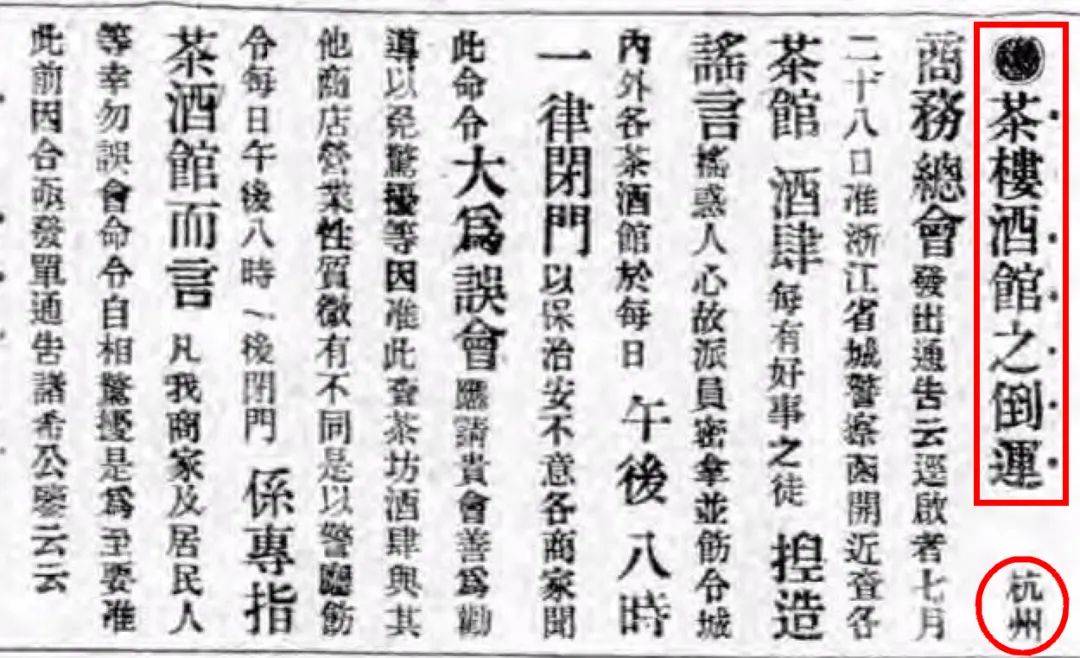 茶樓酒館之倒運
杭州
商務總會發出通告云逕啟者七月
二十八日准浙江省城警察函開近查各
茶館酒肆每有好事之徒捏造
謠言搖惑人心故派員密拿並飭令城
內外各茶酒館於每日午後八時
一律閉門以保治安不意各商家聞
此命令大為誤會應請貴會善為勸
導以免驚擾等因准此查茶坊酒肆與其
他商店營業性質微有不同是以警廳飭
令每日午後八時一後閉門係專指
茶酒館而言凡我商家及居民人
等幸勿誤會命令自相驚擾是為至要准
此前因合亟發單通告諸希公鑒云云